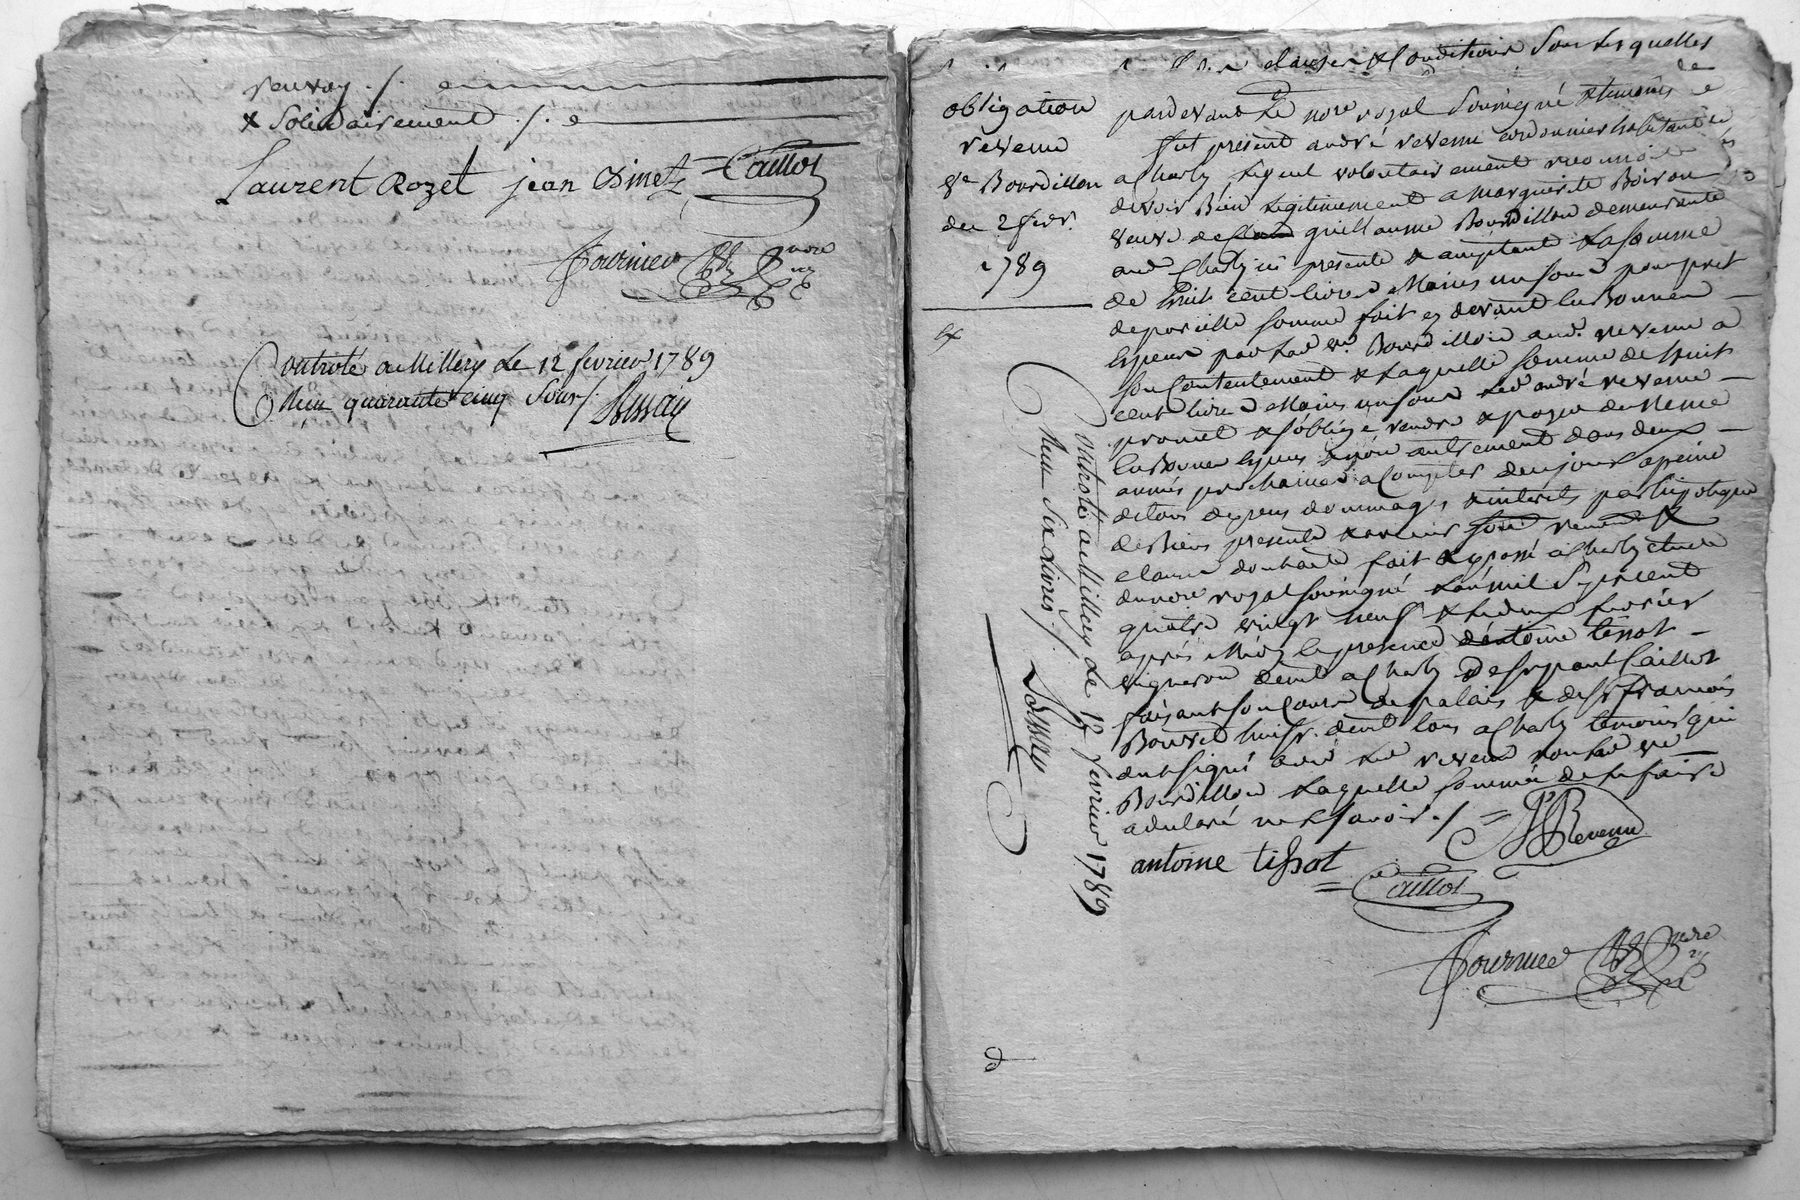 renvoy ./.
x Solidairement ./.
Laurent Rozet jean Dinet Caillot
Fournier
nore
Controlé a Millery Le 12 fevrier 1789
Reçu quarante cinq Sous/.
clauses & Conditions Sous Lesquelles
obligation
revenu
ve Bourdillon
du 2 fevr.
1789
pardevant Le nore royal Soussigné & temoins
fut present andré revenu cordonnier habitant
a Charly Lequel volontairement reconnoit
devoir Bien & legitimement a marguerite Boiron
veuve de guillaume Bourdillon demeurante
aud. Charly ici presente & acceptante La Somme
de huit cent livres Moins un Sous pour pret
de pareille Somme fait cy devant en Bonnes
especes par Lad. ve. Bourdillon aud. revenu a
Son Contentement & Laquelle Somme de huit
cent livres Moins un Sous Led andré revenu
promet & S'oblige rendre & payer de Meme
en Bonnes especes & non autrement dans deux
années prochaines a Compter de ce jour a peine
de tous depens dommages & interets par hipoteque
de Biens presents & avenir
clauses dont acte fait & passé a Charly etude
du nore royal Soussigné L'an mil Sept cent
quatre vingt neuf & Le deux fevrier
après Midy en presence d'antoine tissot
vigneron demt a Charly & de Sr Caillot
faisant Son Cours de palais & de Sr françois
Bouvet huissr. demt tous a Charly temoins qui
ont Signé avec Led revenu non Lad. ve
Bourdillon Laquelle Sommée de Le faire
a declaré ne Le Savoir ./.
Revenu
antoine tissot
Caillot
Fournier
nore
Controlé a Millery Le 12 fevrier 1789
Reçu Six Livres /.